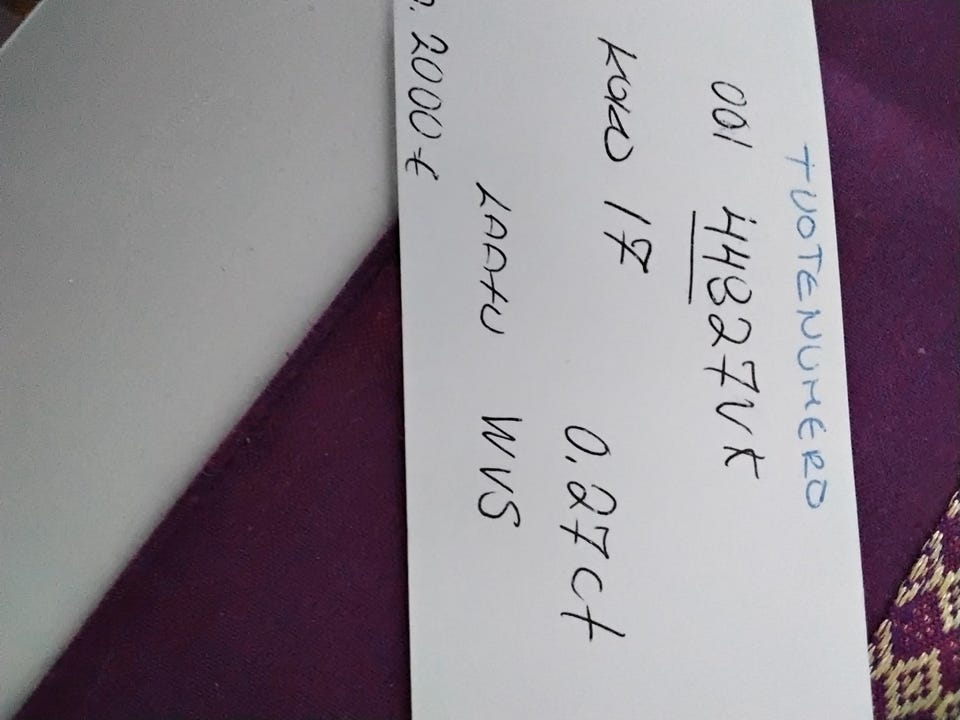 TUOTENUMERO
001 44827VK
KOO 17
0.27ct
LAATU WVS
2000 €